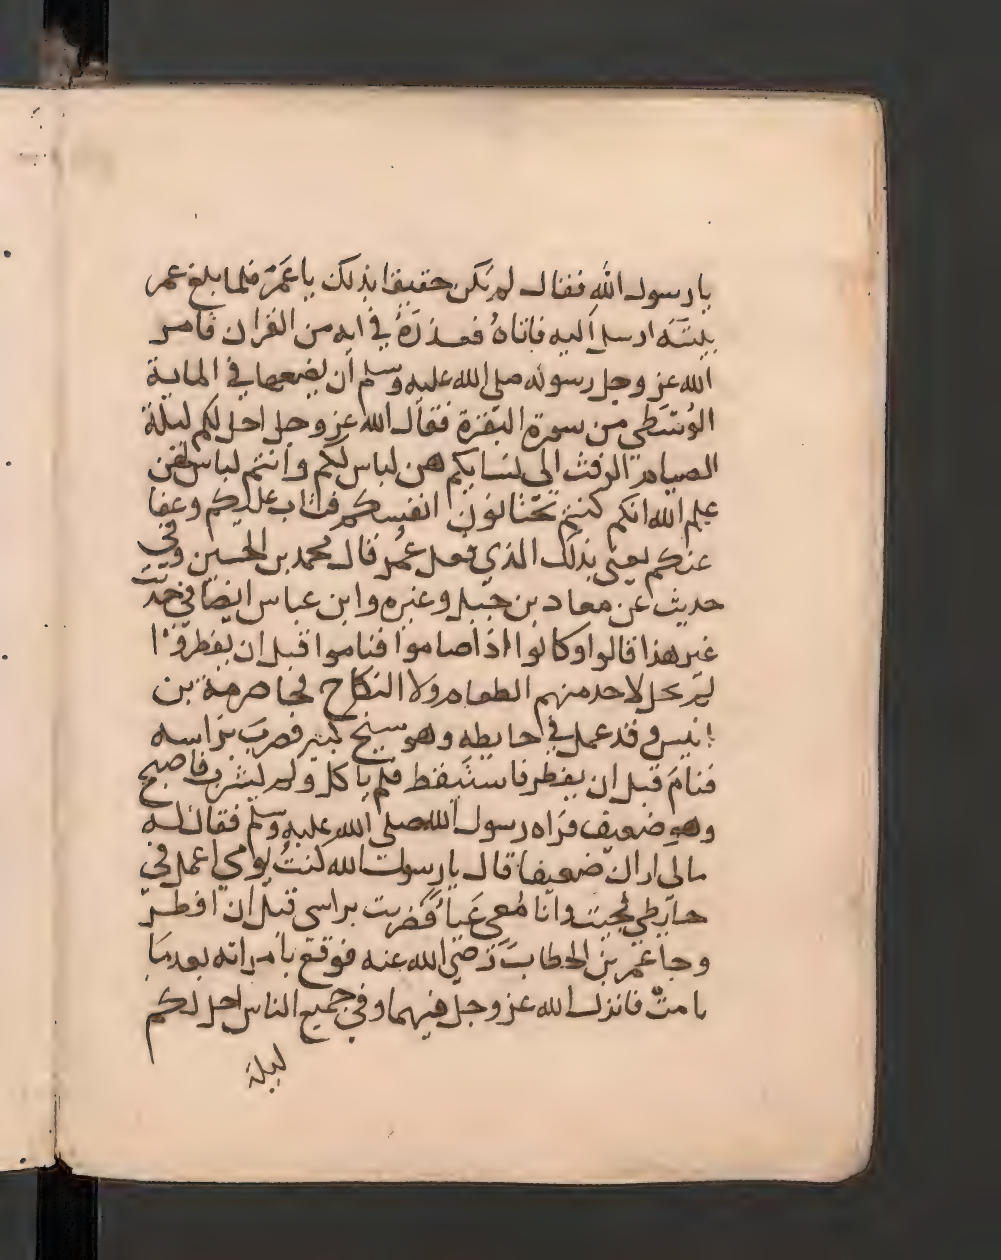 يا رسول الله فقال لم تكن حقيقا بذلك يا عمر فلما بلغ عمر
بيته ارسل اليه فاتاه فعذره في ايه من القران فامر
الله عز وجل رسوله صلى الله عليه وسلم ان يضعها في الماية
الوسطي من سورة البقرة فقال الله عز وجل احل لكم ليلة
الصيام الرفث الى نسايكم هن لباس لكم وانتم لباس لهن
علم الله انكم كنتم تختانون انفسكم فتاب عليكم وعفا
عنكم يعني بذلك الذي فعل عمر قال محمد بن الحسين وفي
حديث عن معاد بن جبل وغيره وابن عباس ايضا في حديث
غير هذا قالوا وكانوا اذا صاموا فناموا قبل ان يفطروا
لم يحل لاحد منهم الطعام ولا النكاح فجا صرمة بن
انيس وقد عمل في حايطه وهو شيخ كبير فضرب براسه
فنام قبل ان يفطر فاستيقظ فلم ياكل ولم يشرب فاصبح
وهو ضعيف فراه رسول الله صلى الله عليه وسلم فقال له
مالى اراك ضعيفا قال يا رسول الله كنت يومي اعمل في
حايطي فجيت وانا معي فضربت براسى قبل ان افطر
وجا عمر بن الخطاب رضي الله عنه فوقع بامراته بعد ما
نامت فانزل الله عز وجل فيهما وفي جميع الناس احل لكم
ليلة